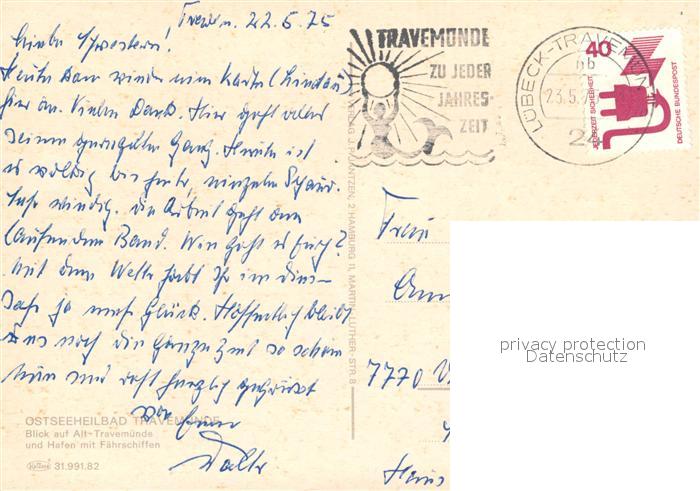 Trav. d. 22.5.75
Liebe Schwestern!
Heute kam wieder eine Karte (Lindau)
hier an. Vielen Dank. Hier geht alles
seinen gewohnten Gang. Heute ist
es wolkig bis heiter, einzelne Schauer.
Sehr windig. Die Arbeit geht am
laufenden Band. Wie geht es Euch?
Mit dem Wetter habt Ihr in diesem
Jahr ja mehr Glück. Hoffentlich bleibt
es noch die ganze Zeit so schön
und seid herzlich gegrüßt
von Eurem
Walter
OSTSEEHEILBAD TRAVEMÜNDE
Blick auf Alt-Travemünde
und Hafen mit Fährschiffen
31.991.82
TRAVEMÜNDE
ZU JEDER
JAHRES-
ZEIT
LÜBECK-TRAVEMÜN
23.5.7
24
40
JEDERZEIT SICHERHEIT
DEUTSCHE BUNDESPOST
2 HAMBURG 11, MARTIN-LUTHER-STR. 8
Frau
Ann
7770
Haus
privacy protection
Datenschutz